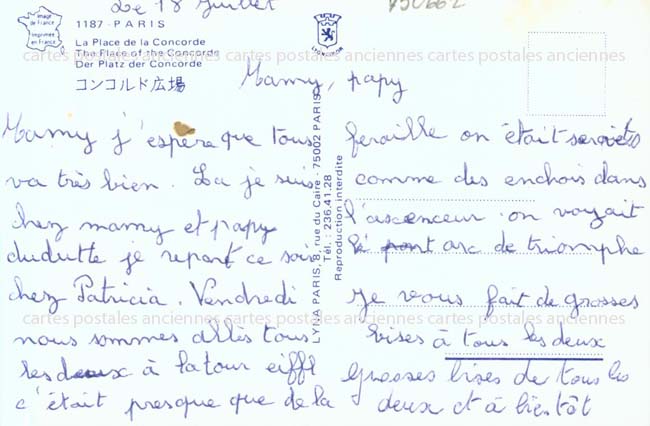 Le 18 Juillet
750662
Image de France
Imprimée en France
1187 - PARIS
La Place de la Concorde
The Place of the Concorde
Der Platz der Concorde
コンコルド広場
LYNACOLOR
Mamy, papy
Mamy j'espère que tous
va très bien. La je suis
chez mamy et papy
dudutte je repart ce soir
chez Patricia. Vendredi
nous sommes allès tous
les deux à la tour eiffl
c'était presque que de la
LYNA PARIS, 8, rue du Caire - 75002 PARIS
Tél. : 236.41.28
Reproduction interdite
feraille on était serviets
comme des enchois dans
l'ascenceur on voyait
le pont arc de triomphe
je vous fait de grosses
bises à tous les deux
grosses bises de tous les
deux et à bientôt
cartes postales anciennes cartes postales anciennes cartes postales anciennes
cartes postales anciennes cartes postales anciennes cartes postales anciennes
cartes postales anciennes cartes postales anciennes cartes postales anciennes